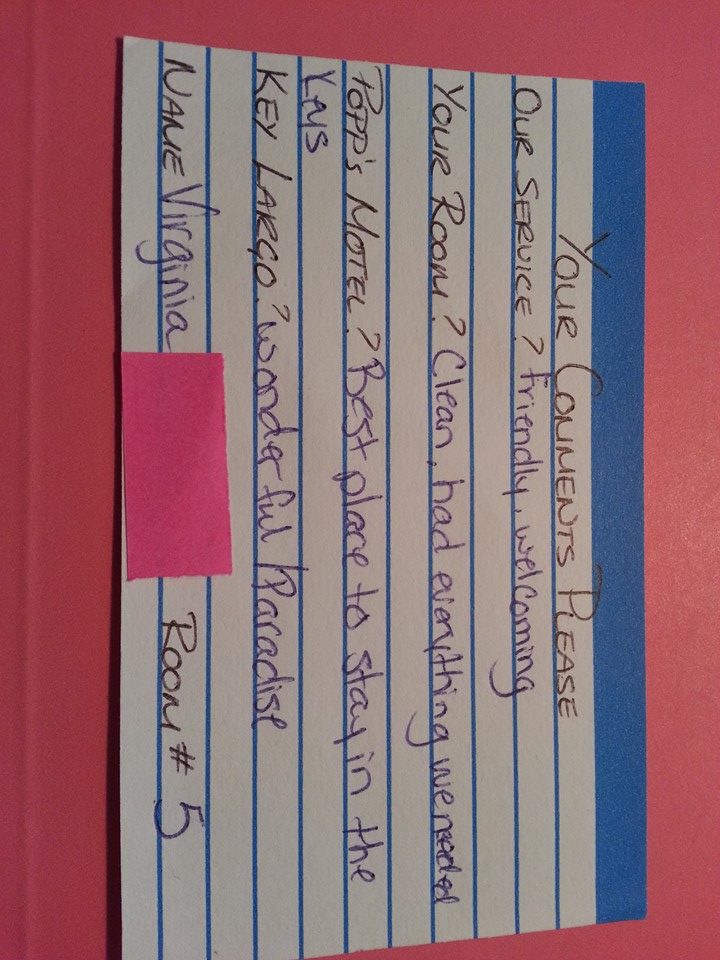 YOUR COMMENTS PLEASE
OUR SERVICE? friendly, welcoming
YOUR ROOM? Clean, had everything we needed
POPP'S MOTEL? Best place to stay in the
Keys
KEY LARGO? wonderful/Paradise
NAME Virginia ROOM # 5